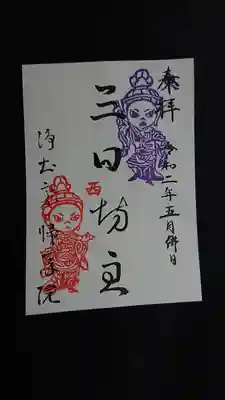 奉拝
令和二年五月併日
三日坊主
西
浄土宗帰命院